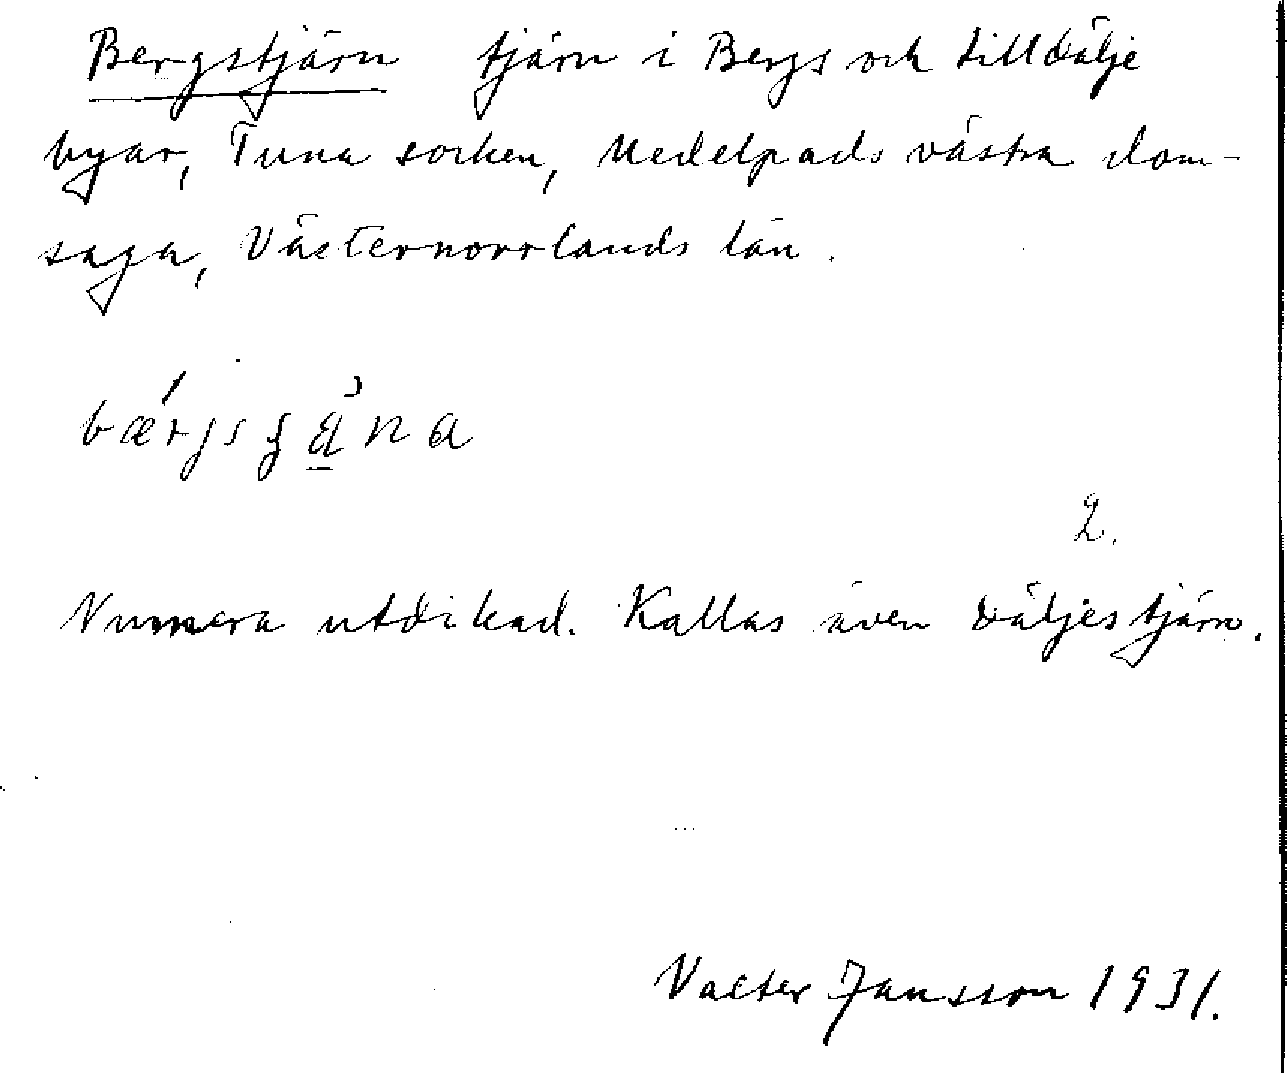 Bergstjärn tjärn i Bergs och Lilldälje
byar, Tuna socken, Medelpads västra dom-
saga, Västernorrlands län.
2.
Numera utdikad. Kallas även Däljestjärn.
Valter Jansson 1931.